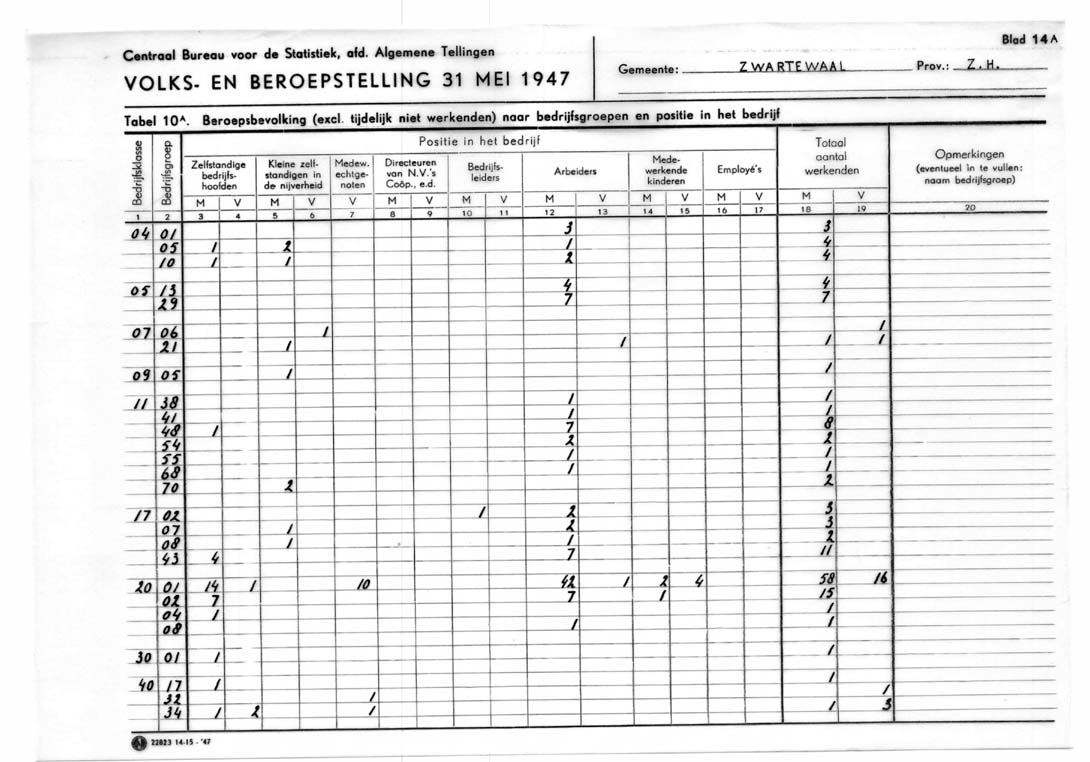 Blad 14A
Centraal Bureau voor de Statistiek, afd. Algemene Tellingen
VOLKS- EN BEROEPSTELLING 31 MEI 1947
Gemeente: ZWARTEWAAL Prov.: Z.H.
Tabel 10A. Beroepsbevolking (excl. tijdelijk niet werkenden) naar bedrijfsgroepen en positie in het bedrijf
Bedrijfsklasse Bedrijfsgroep Positie in het bedrijf Totaal aantal werkenden Opmerkingen (eventueel in te vullen: naam bedrijfsgroep)
Zelfstandige bedrijfshoofden Kleine zelfstandigen in de nijverheid Medew. echtgenoten Directeuren van N.V.'s Coöp., e.d. Bedrijfsleiders Arbeiders Medewerkende kinderen Employé's
M V M V V M V M V M V M V M V M V
1 2 3 4 5 6 7 8 9 10 11 12 13 14 15 16 17 18 19 20
04 01 3 3
05 1 2 1 4
10 1 1 2 4
05 13 4 4
29 7 7
07 06 1 1
21 1 1 1 1
09 05 1 1
11 38 1 1
41 1 1
48 1 7 8
54 2 2
55 1 1
68 1 1
70 2 2
17 02 1 2 3
07 1 2 3
08 1 1 2
43 4 7 11
20 01 14 1 10 42 1 2 4 58 16
02 7 7 1 15
04 1 1
08 1 1
30 01 1 1
40 17 1 1
32 1 1
34 1 2 1 1 3
22823 14-15 - '47